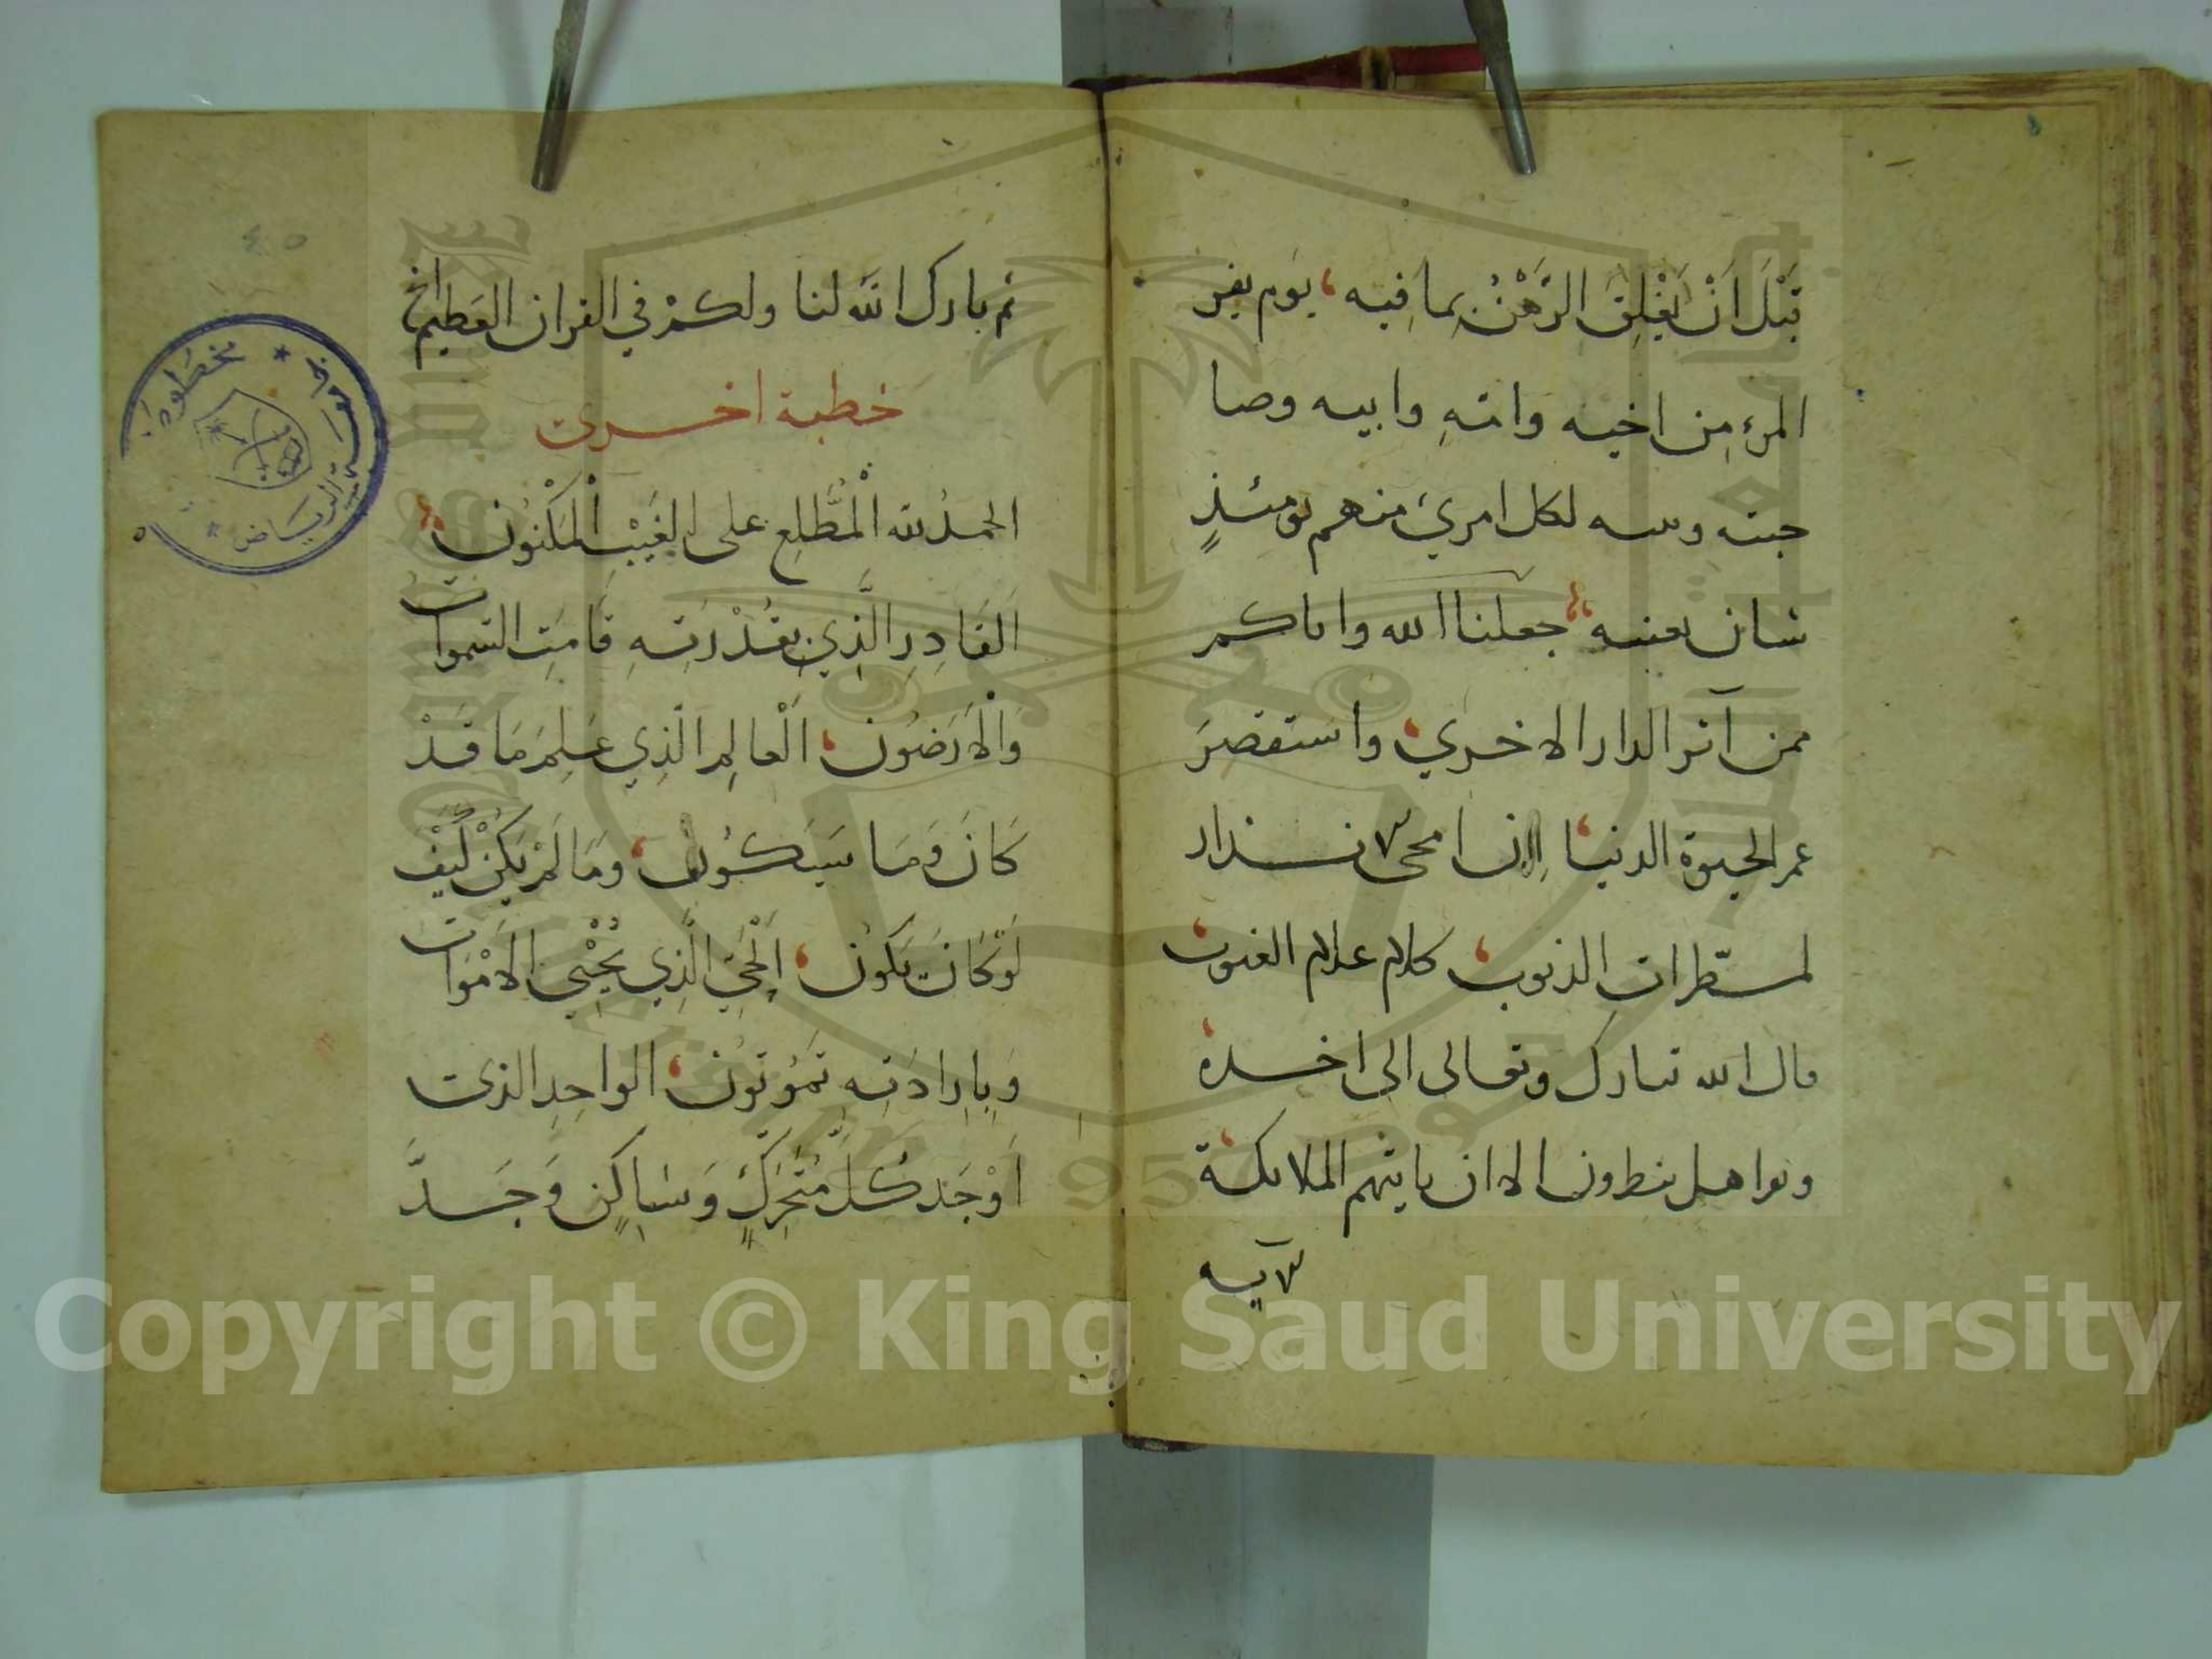 قَبْلَ اَنْ يَغْلِقَ الرَّهْنُ بِمَا فِيه، يَوم يفر
المرءِ مِن اخيه وامّهِ وابيه وصا
حبته وبنيه لكل امرئ منهم يومئذٍ
شان يغنيه جعلنا الله واياكم
ممن آثر الدار الاخرى، واستَقصَرَ
عمر الحيوة الدنيا، ان امحى الانذار
لمسطّرات الذنوب، كلام علام الغيوب،
قال الله تبارك وتعالى الى اخره،
ونوا هل ينظرون الا ان ياتيهم الملائكة،
الآيه
٤٥
ثم بارك الله لنا ولكمْ في القران العَظيم الخ
خطبة اخرى
الحمدُ لله اَلْمُطَّلِعِ على الغَيْبِ الْمَكْنُونِ
اَلقَادِرِ الَّذِي بِقُدْرَتِهِ قَامَتِ السّموات
وَالْاَرَضُون، اَلْعالِمِ الَّذِي عَلِمَ مَا قَدْ
كَانَ وَمَا سَيَكُون، وَمَا لَمْ يَكُنْ كَيْفَ
لَوْ كَانَ يَكُون، اَلْحَيِّ الَّذِي يُحْيِي الْاَمْوَات
وَبِاِرَادَتِه تَمُوتُونَ، الواحِدِ الذى
اَوْجَدَ كُلَّ مُتَحَرِّكٍ وَسَاكِنٍ وَجَسَدٍ
مخطوطات
الرياض
Copyright © King Saud University
1957